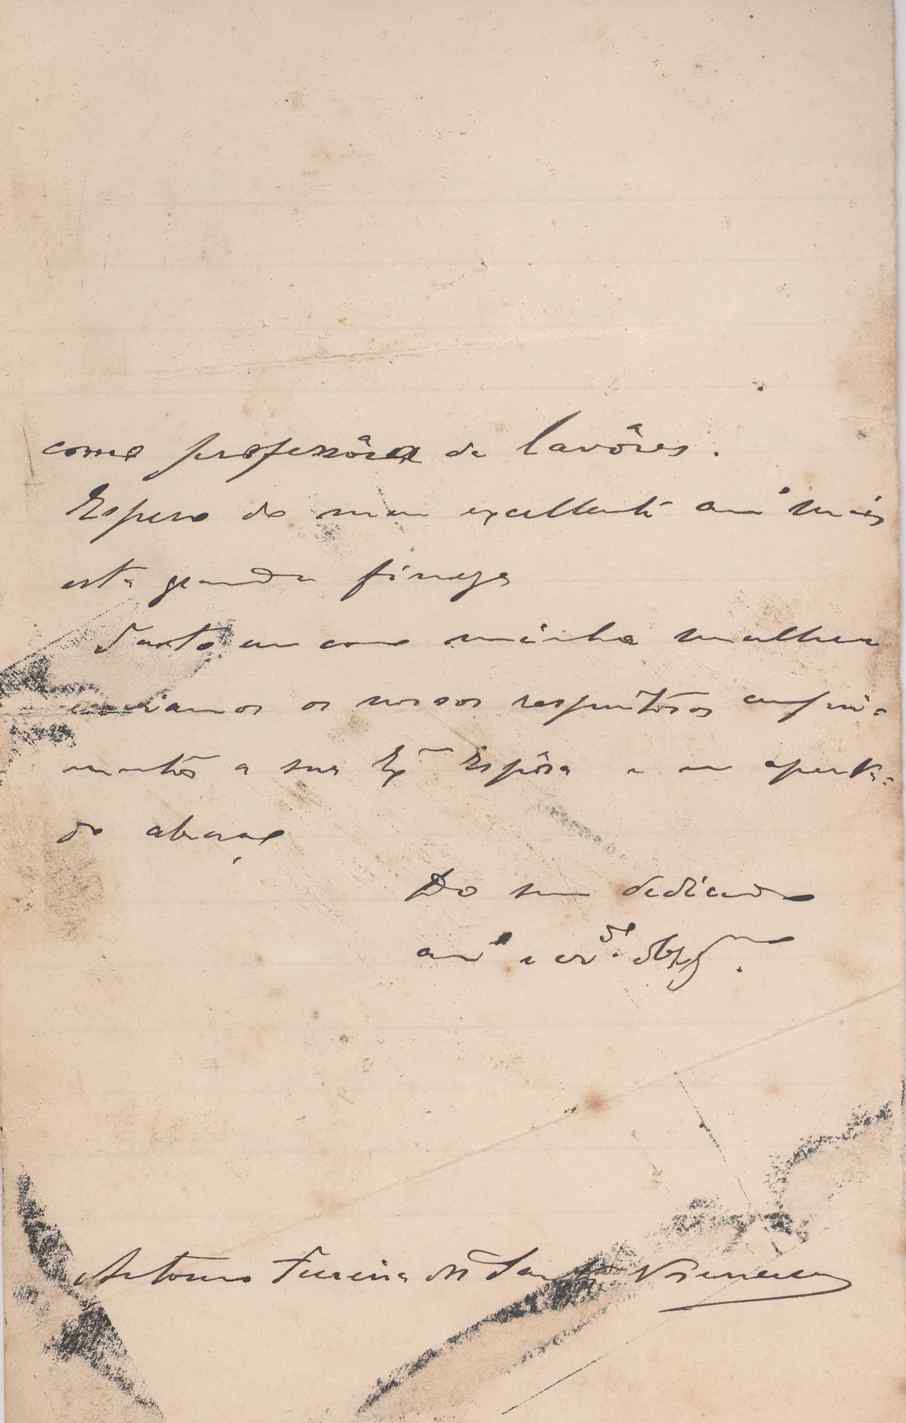 como professôra de lavôres.
Espero do meu excellente amº mais
esta grande fineza
Junto eu com minha mulher
enviamos os nossos respeitosos cumpri-
mentos a sua Exª Espôsa e um aperta-
do abraço
Do seu dedicado
amº e crdº. obgº.
Antonio Ferreira dos Santos